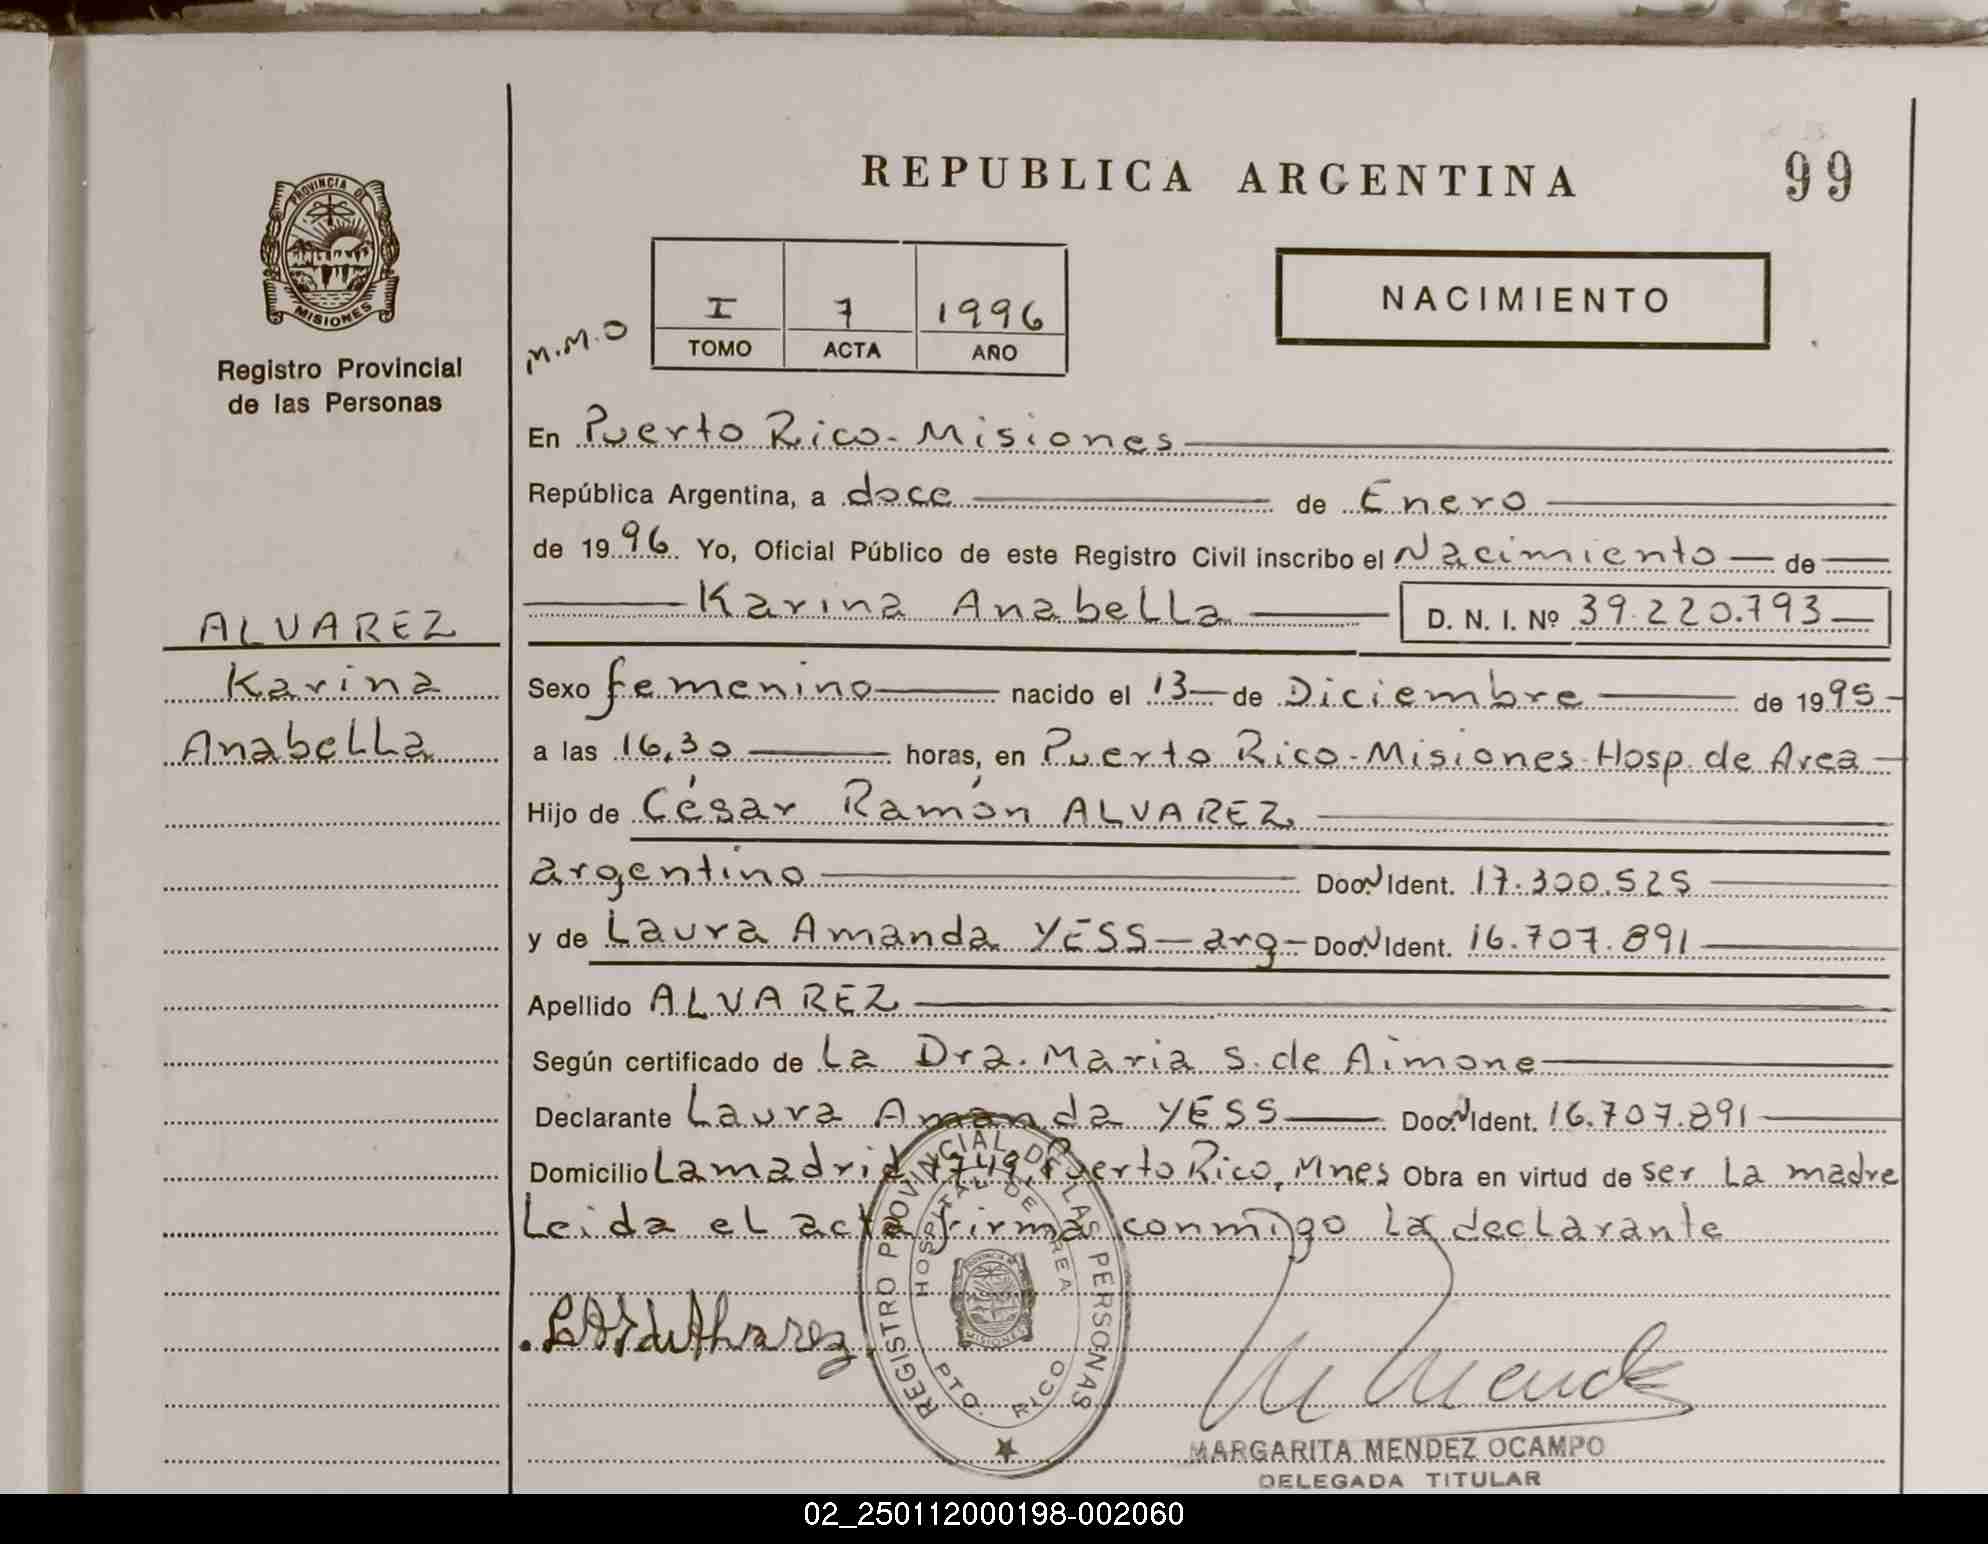 REPUBLICA ARGENTINA
99
PROVINCIA DE
MISIONES
Registro Provincial
de las Personas
M.M.O
I 7 1996
TOMO ACTA AÑO
NACIMIENTO
En Puerto Rico - Misiones
República Argentina, a doce de Enero
de 1996 Yo, Oficial Público de este Registro Civil inscribo el Nacimiento de
Karina Anabella D. N. I. Nº 39.220.793
ALVAREZ
Karina
Anabella
Sexo femenino nacido el 13 de Diciembre de 1995
a las 16,30 horas, en Puerto Rico - Misiones - Hosp. de Area
Hijo de César Ramón ALVAREZ
argentino Doc. N Ident. 17.300.525
y de Laura Amanda YESS - arg - Doc. N Ident. 16.707.891
Apellido ALVAREZ
Según certificado de La Dra. Maria S. de Aimone
Declarante Laura Amanda YESS Doc. N Ident. 16.707.891
Domicilio Lamadrid 1749, Puerto Rico, Mnes Obra en virtud de ser La madre
Leida el acta firma conmigo La declarante
REGISTRO PROVINCIAL DE LAS PERSONAS
HOSPITAL DE AREA
MISIONES
PTO. RICO
MARGARITA MENDEZ OCAMPO
DELEGADA TITULAR
02_250112000198-002060